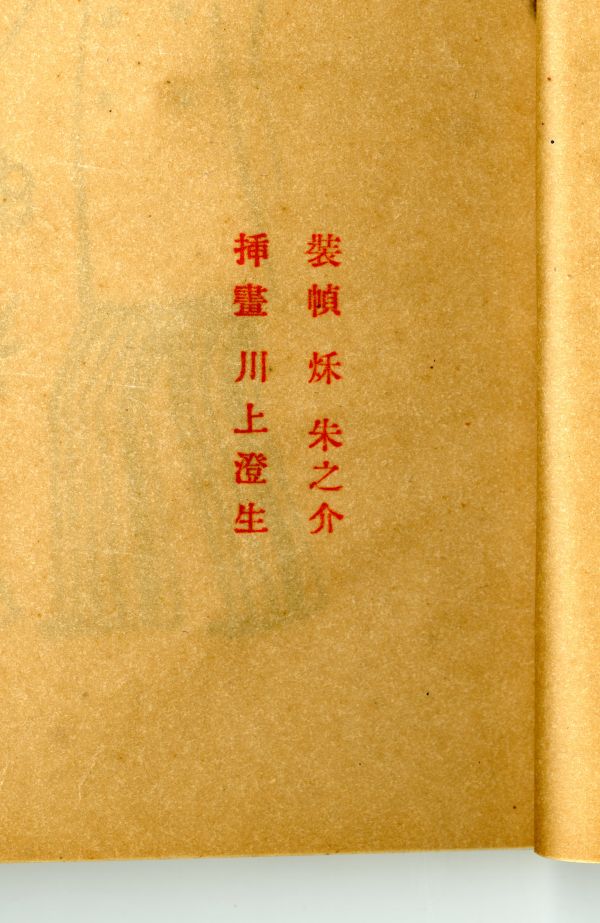 裝幀 炑 朱之介
挿畫 川上澄生